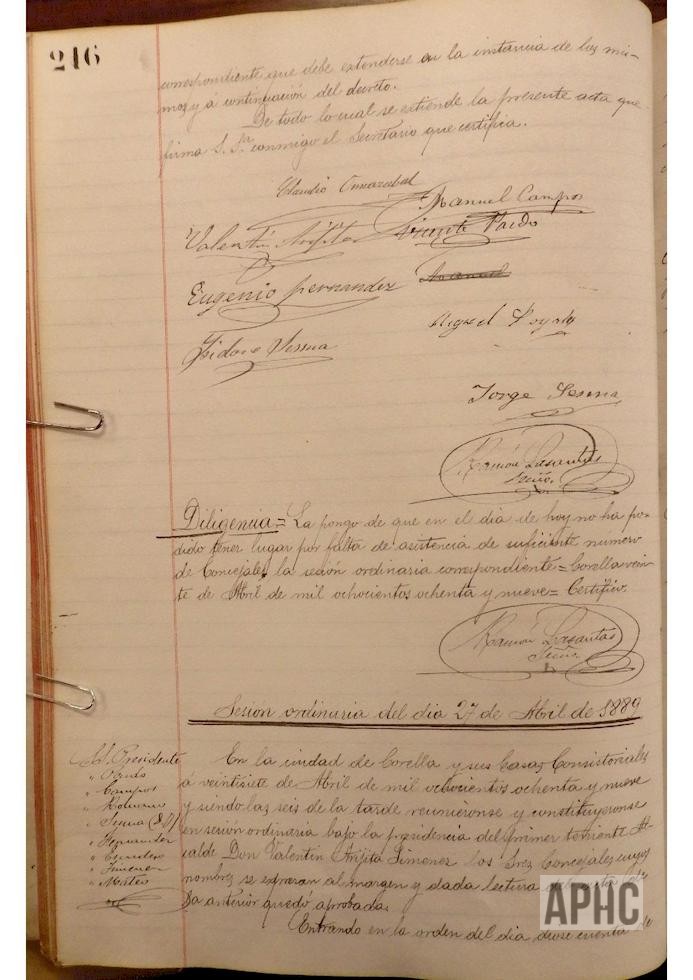 246
correspondiente que debe extenderse en la instancia de los mis-
mos y á continuación del decreto.
De todo lo cual se extiende la presente acta que
firma S. Sria conmigo el Secretario que certifica.
Claudio
Manuel Campos
Valentin Arijita Vicente Pardo
Eugenio Fernandez Manuel
Miguel Poyales
Isidoro Sesma
Jorge Sesma
Ramón Lasantas
Srio.
Diligencia = La pongo de que en el dia de hoy no ha po-
dido tener lugar por falta de asistencia de suficiente numero
de Concejales la sesión ordinaria correspondiente = Corella vein-
te de Abril de mil ochocientos ochenta y nueve = Certifico.
Ramón Lasantas
Srio.
Sesion ordinaria del dia 27 de Abril de 1889
S.S. Presidente
" Pardo
" Campos
"
" Sesma (D.J.)
" Fernandez
"
" Jimenez
" Mateo
En la ciudad de Corella y sus Casas Consistoriales
á veintisiete de Abril de mil ochocientos ochenta y nueve
y siendo las seis de la tarde reunieronse y constituyeronse
en sesión ordinaria bajo la presidencia del primer teniente Al-
calde Don Valentin Arijita Jimenez los Sres Concejales cuyos
nombres se expresan al margen y dada lectura del acta de
la anterior quedó aprobada.
Entrando en la orden del dia diose cuenta de
APHC